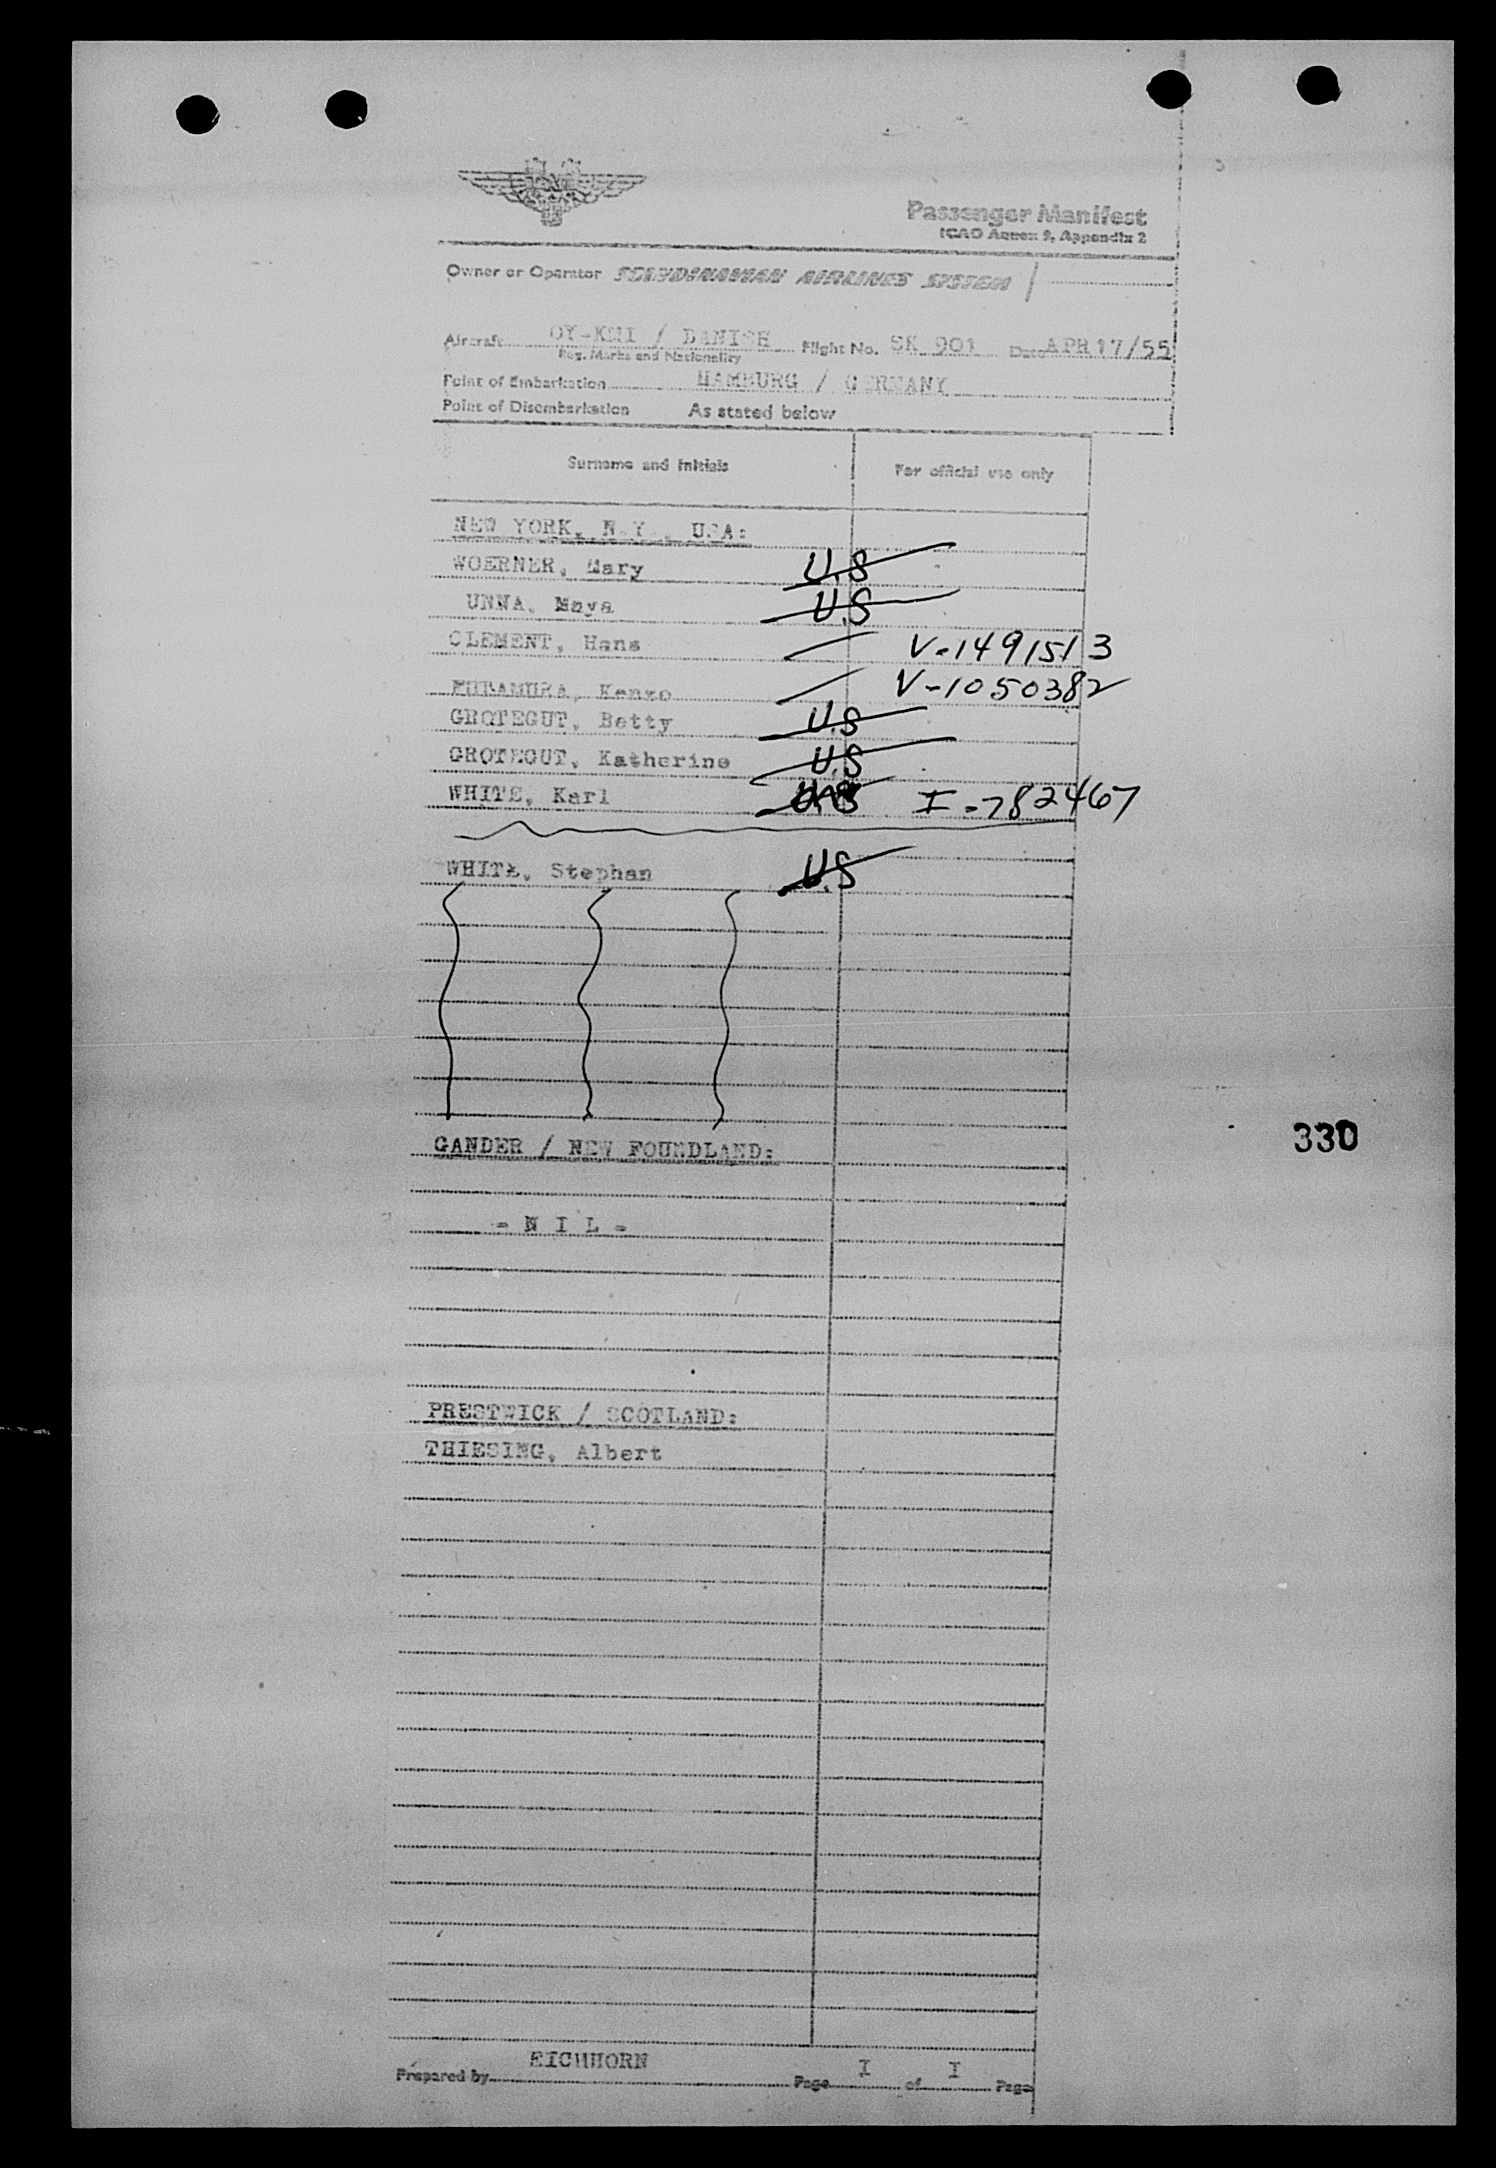 Passenger Manifest
ICAO Annex 9, Appendix 2
Owner or Operator SCANDINAVIAN AIRLINES SYSTEM
Aircraft OY-KMI / DANISH Flight No. SK 901 Date APR 17/55
Reg. Marks and Nationality
Point of Embarkation HAMBURG / GERMANY
Point of Disembarkation As stated below
Surname and Initials For official use only
NEW YORK, N.Y., USA:
WOERNER, Mary U.S
UNNA, Maya U.S
CLEMENT, Hans V-1491513
Kenzo V-1050382
GROTEGUT, Betty U.S
GROTEGUT, Katherine U.S
WHITE, Karl U.S I-782467
WHITE, Stephan U.S
GANDER / NEW FOUNDLAND:
330
- N I L -
PRESTWICK / SCOTLAND:
THIESING, Albert
Prepared by EICHHORN Page I of I Page